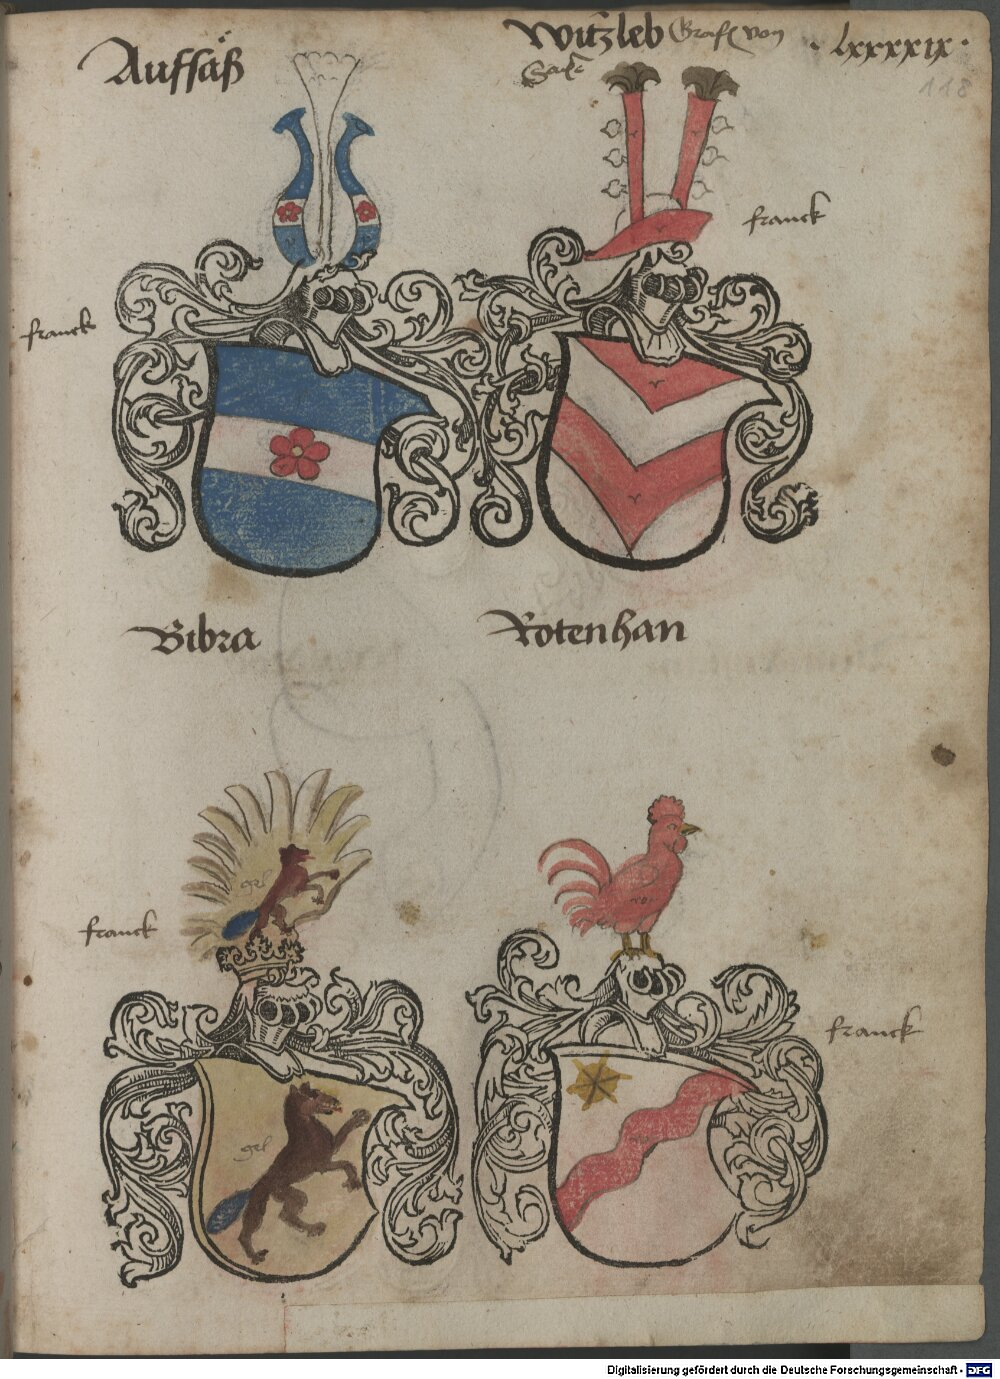 Auffäß
Witzleb Graff von
· lxxxxix ·
118
franck
franck
Bibra
Rotenhan
gel
franck
gel
franck
Digitalisierung gefördert durch die Deutsche Forschungsgemeinschaft - DFG